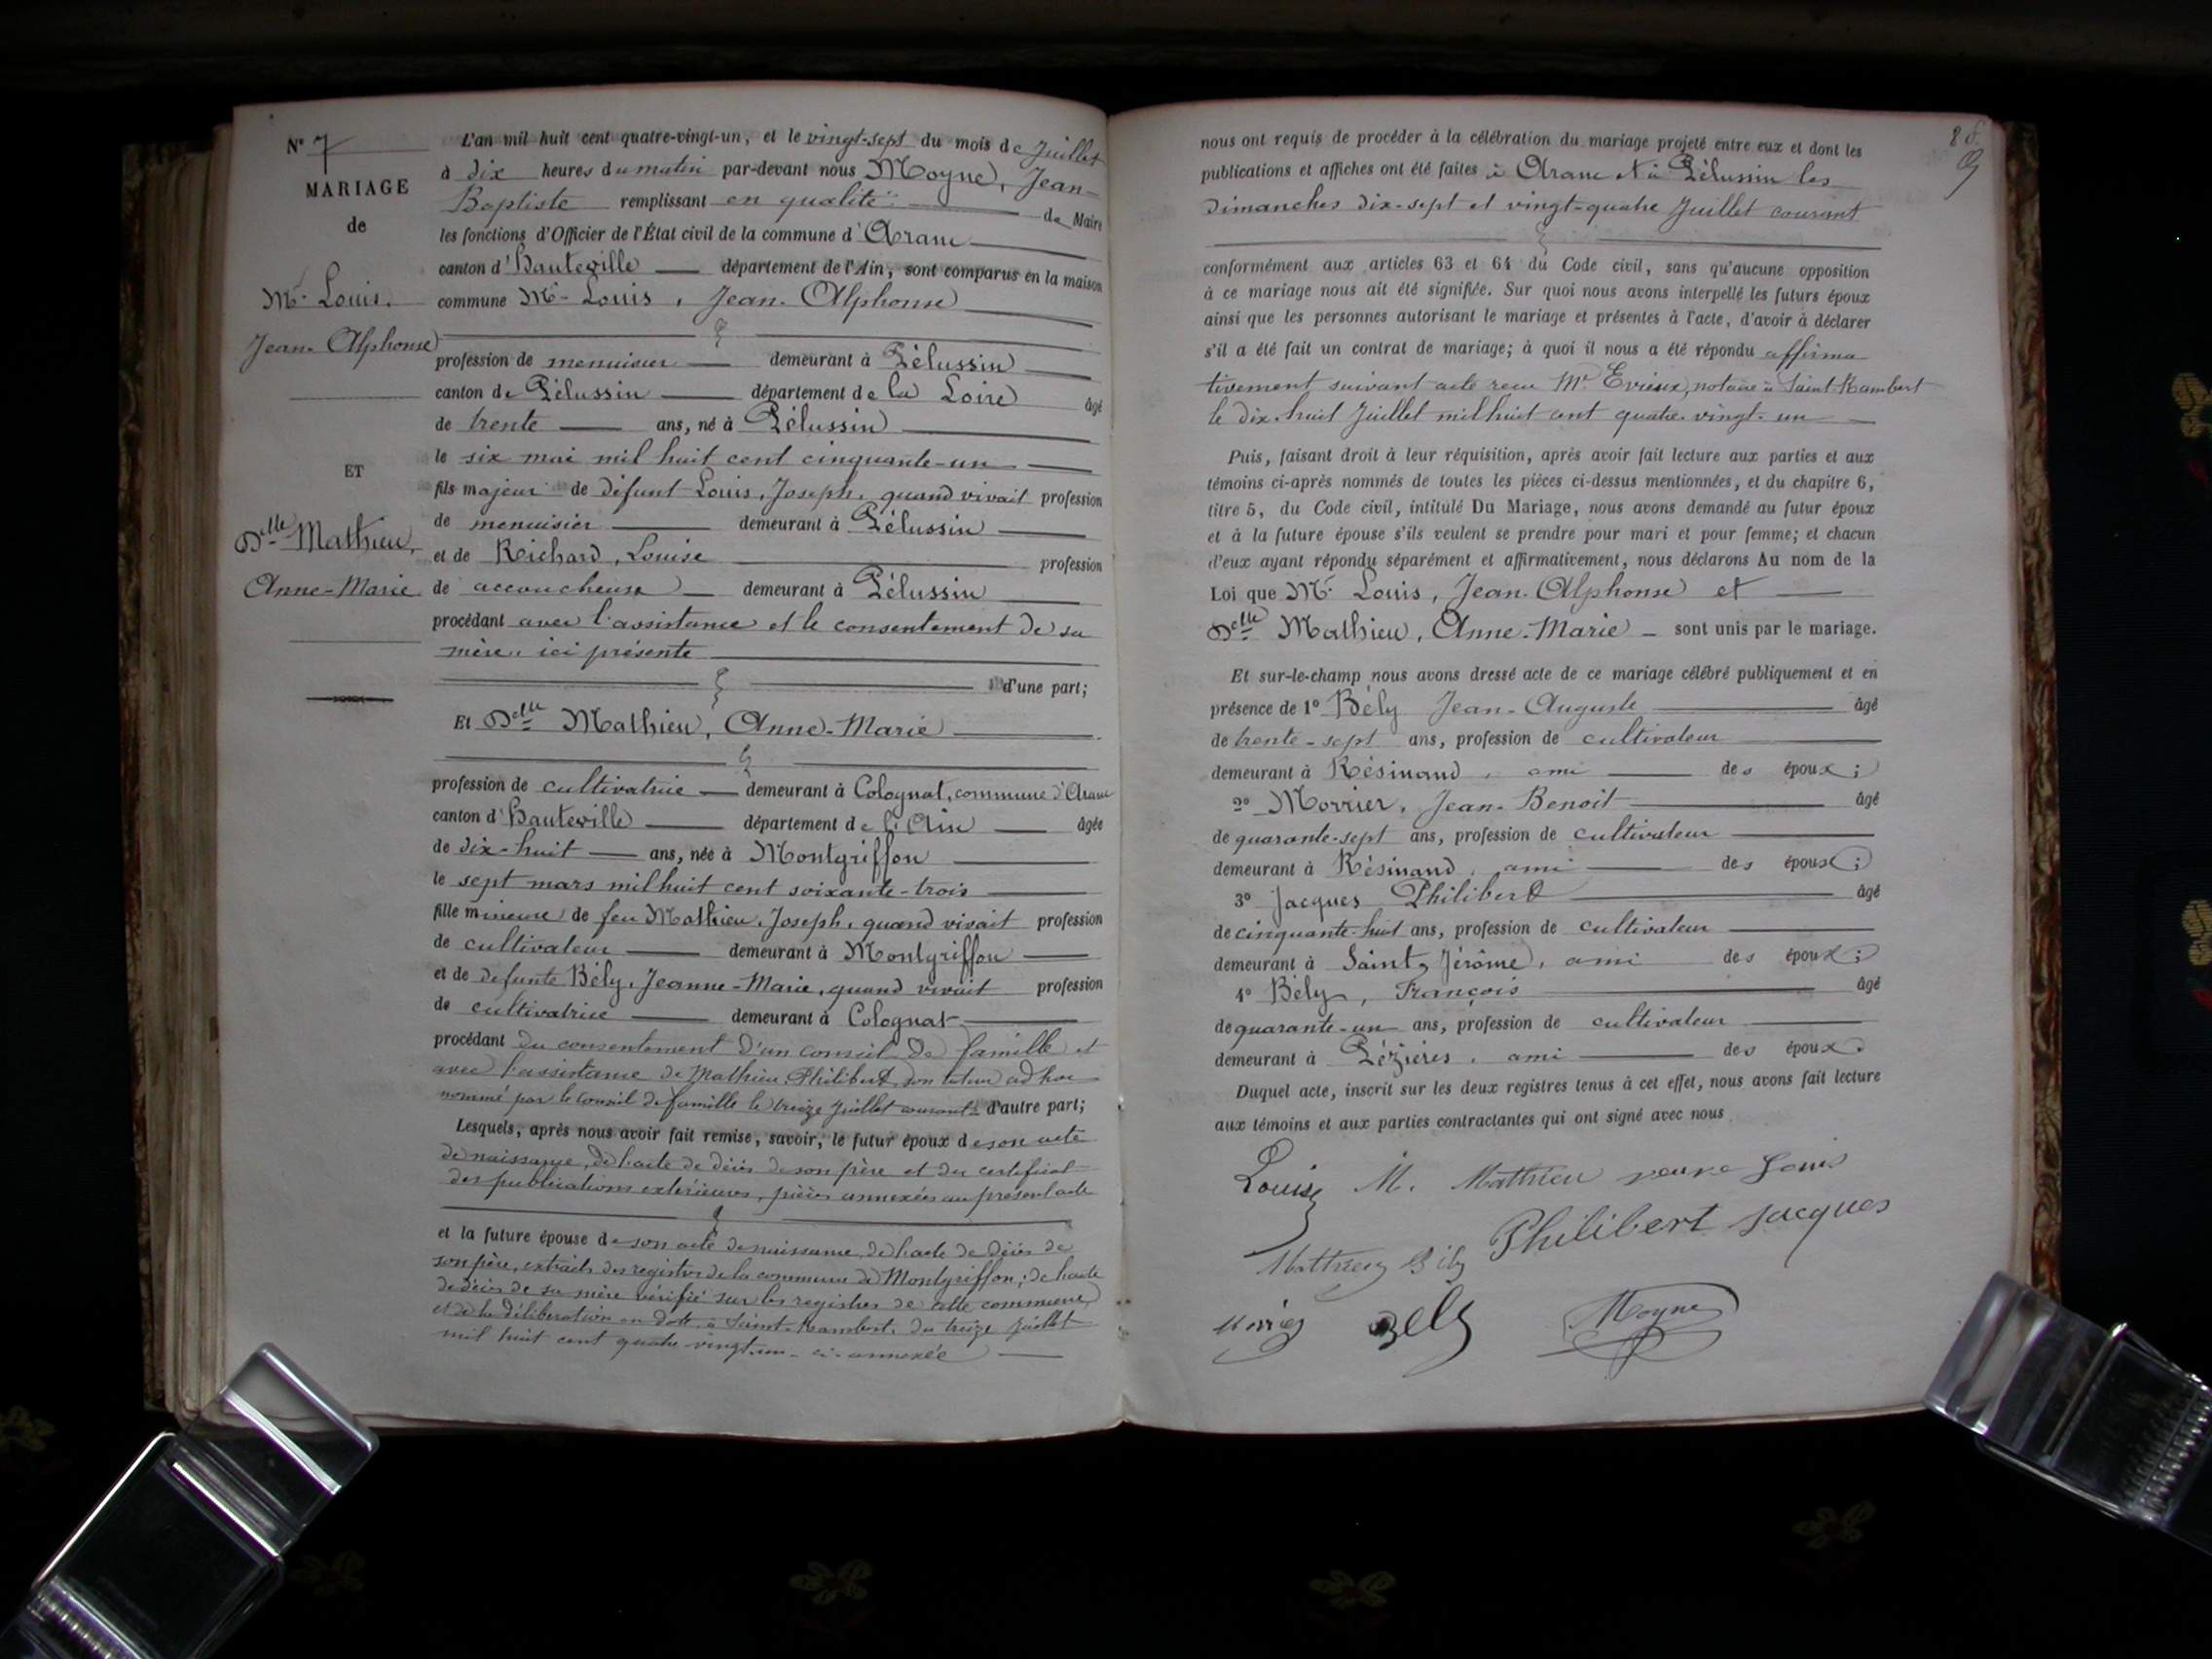 N° 7
MARIAGE
de
Mr Louis,
Jean-Alphonse
ET
Delle Mathieu,
Anne-Marie
L'an mil huit cent quatre-vingt-un, et le vingt-sept du mois de Juillet
à dix heures du matin par-devant nous Moyne, Jean-
Baptiste remplissant en qualité de Maire
les fonctions d'Officier de l'État civil de la commune d'Aranc
canton d'Hauteville département de l'Ain, sont comparus en la maison
commune Mr Louis, Jean-Alphonse
profession de menuisier demeurant à Pélussin
canton de Pélussin département de la Loire âgé
de trente ans, né à Pélussin
le six mai mil huit cent cinquante-un
fils majeur de défunt Louis, Joseph, quand vivait profession
de menuisier demeurant à Pélussin
et de Richard, Louise profession
de accoucheuse demeurant à Pélussin
procédant avec l'assistance et le consentement de sa
mère, ici présente
d'une part;
Et Delle Mathieu, Anne-Marie
profession de cultivatrice demeurant à Colognat, commune d'Aranc
canton d'Hauteville département de l'Ain âgée
de dix-huit ans, née à Montgriffon
le sept mars mil huit cent soixante-trois
fille mineure de feu Mathieu, Joseph, quand vivait profession
de cultivateur demeurant à Montgriffon
et de défunte Bély, Jeanne-Marie, quand vivait profession
de cultivatrice demeurant à Colognat
procédant du consentement d'un conseil de famille et
avec l'assistance de Mathieu, Philibert, son tuteur ad hoc
nommé par le Conseil de famille le treize Juillet courant d'autre part;
Lesquels, après nous avoir fait remise, savoir, le futur époux de son acte
de naissance, de l'acte de décès de son père et du certificat
des publications extérieures, pièces annexées au présent acte
et la future épouse de son acte de naissance, de l'acte de décès de
son père, extraits des registres de la commune de Montgriffon; de l'acte
de décès de sa mère vérifié sur les registres de cette commune
et de la délibération en date, à Saint-Rambert, du treize Juillet
mil huit cent quatre-vingt-un ci-annexée
nous ont requis de procéder à la célébration du mariage projeté entre eux et dont les
publications et affiches ont été faites à Aranc et à Pélussin les
dimanches dix-sept et vingt-quatre Juillet courant
conformément aux articles 63 et 64 du Code civil, sans qu'aucune opposition
à ce mariage nous ait été signifiée. Sur quoi nous avons interpellé les futurs époux
ainsi que les personnes autorisant le mariage et présentes à l'acte, d'avoir à déclarer
s'il a été fait un contrat de mariage; à quoi il nous a été répondu affirma
tivement suivant acte reçu Me Evieux, notaire à Saint-Rambert
le dix-huit Juillet mil huit cent quatre-vingt-un
Puis, faisant droit à leur réquisition, après avoir fait lecture aux parties et aux
témoins ci-après nommés de toutes les pièces ci-dessus mentionnées, et du chapitre 6,
titre 5, du Code civil, intitulé Du Mariage, nous avons demandé au futur époux
et à la future épouse s'ils veulent se prendre pour mari et pour femme; et chacun
d'eux ayant répondu séparément et affirmativement, nous déclarons Au nom de la
Loi que Mr Louis, Jean-Alphonse et
Delle Mathieu, Anne-Marie sont unis par le mariage.
Et sur-le-champ nous avons dressé acte de ce mariage célébré publiquement et en
présence de 1° Bély Jean-Auguste âgé
de trente-sept ans, profession de cultivateur
demeurant à Résinand, ami des époux;
2° Morrier, Jean-Benoit âgé
de quarante-sept ans, profession de cultivateur
demeurant à Résinand, ami des époux;
3° Jacques Philibert âgé
de cinquante-huit ans, profession de cultivateur
demeurant à Saint-Jérôme, ami des époux;
4° Bély, François âgé
de quarante-un ans, profession de cultivateur
demeurant à Pézières, ami des époux.
Duquel acte, inscrit sur les deux registres tenus à cet effet, nous avons fait lecture
aux témoins et aux parties contractantes qui ont signé avec nous
Louis M. Mathieu veuve Louis
Philibert Jacques
Mathieu Bély
Bély Moyne